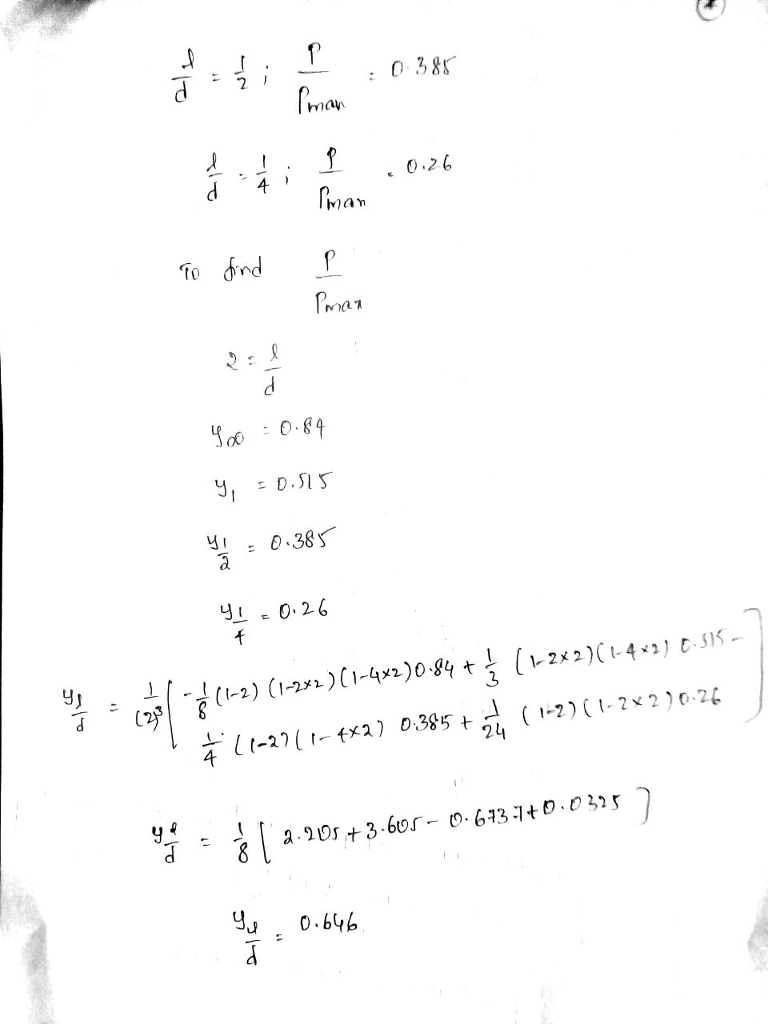 l/d = 1/2 ; P/Pmax = 0.385
l/d = 1/4 ; P/Pmax = 0.26
To find P/Pmax
2 = l/d
y∞ = 0.84
y1 = 0.515
y1/2 = 0.385
y1/4 = 0.26
yl/d = 1/(2)³ [ -1/8 (1-2) (1-2×2) (1-4×2) 0.84 + 1/3 (1-2×2) (1-4×2) 0.515 -
1/4 (1-2) (1-4×2) 0.385 + 1/24 (1-2) (1-2×2) 0.26 ]
yl/d = 1/8 [ 2.205 + 3.605 - 0.6737 + 0.0325 ]
yl/d = 0.646